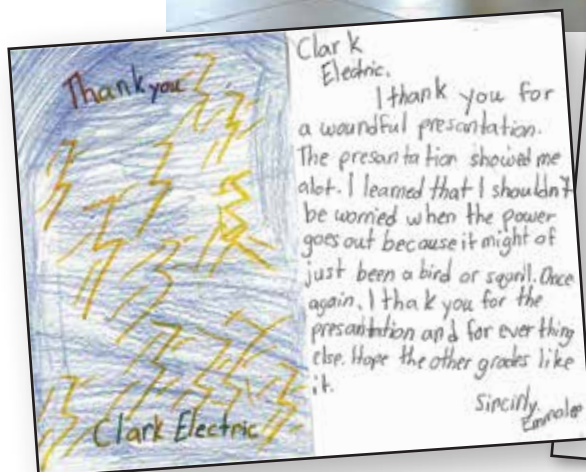 Thank you
Clark Electric
Clark
Electric.
I thank you for
a woundful presantation.
The presantation showed me
alot. I learned that I shouldn't
be worried when the power
goes out because it might of
just been a bird or sqaril. Once
again, I thak you for the
presantation and for ever thing
else. Hope the other grades like
it.
Sincirly,
Emmalee